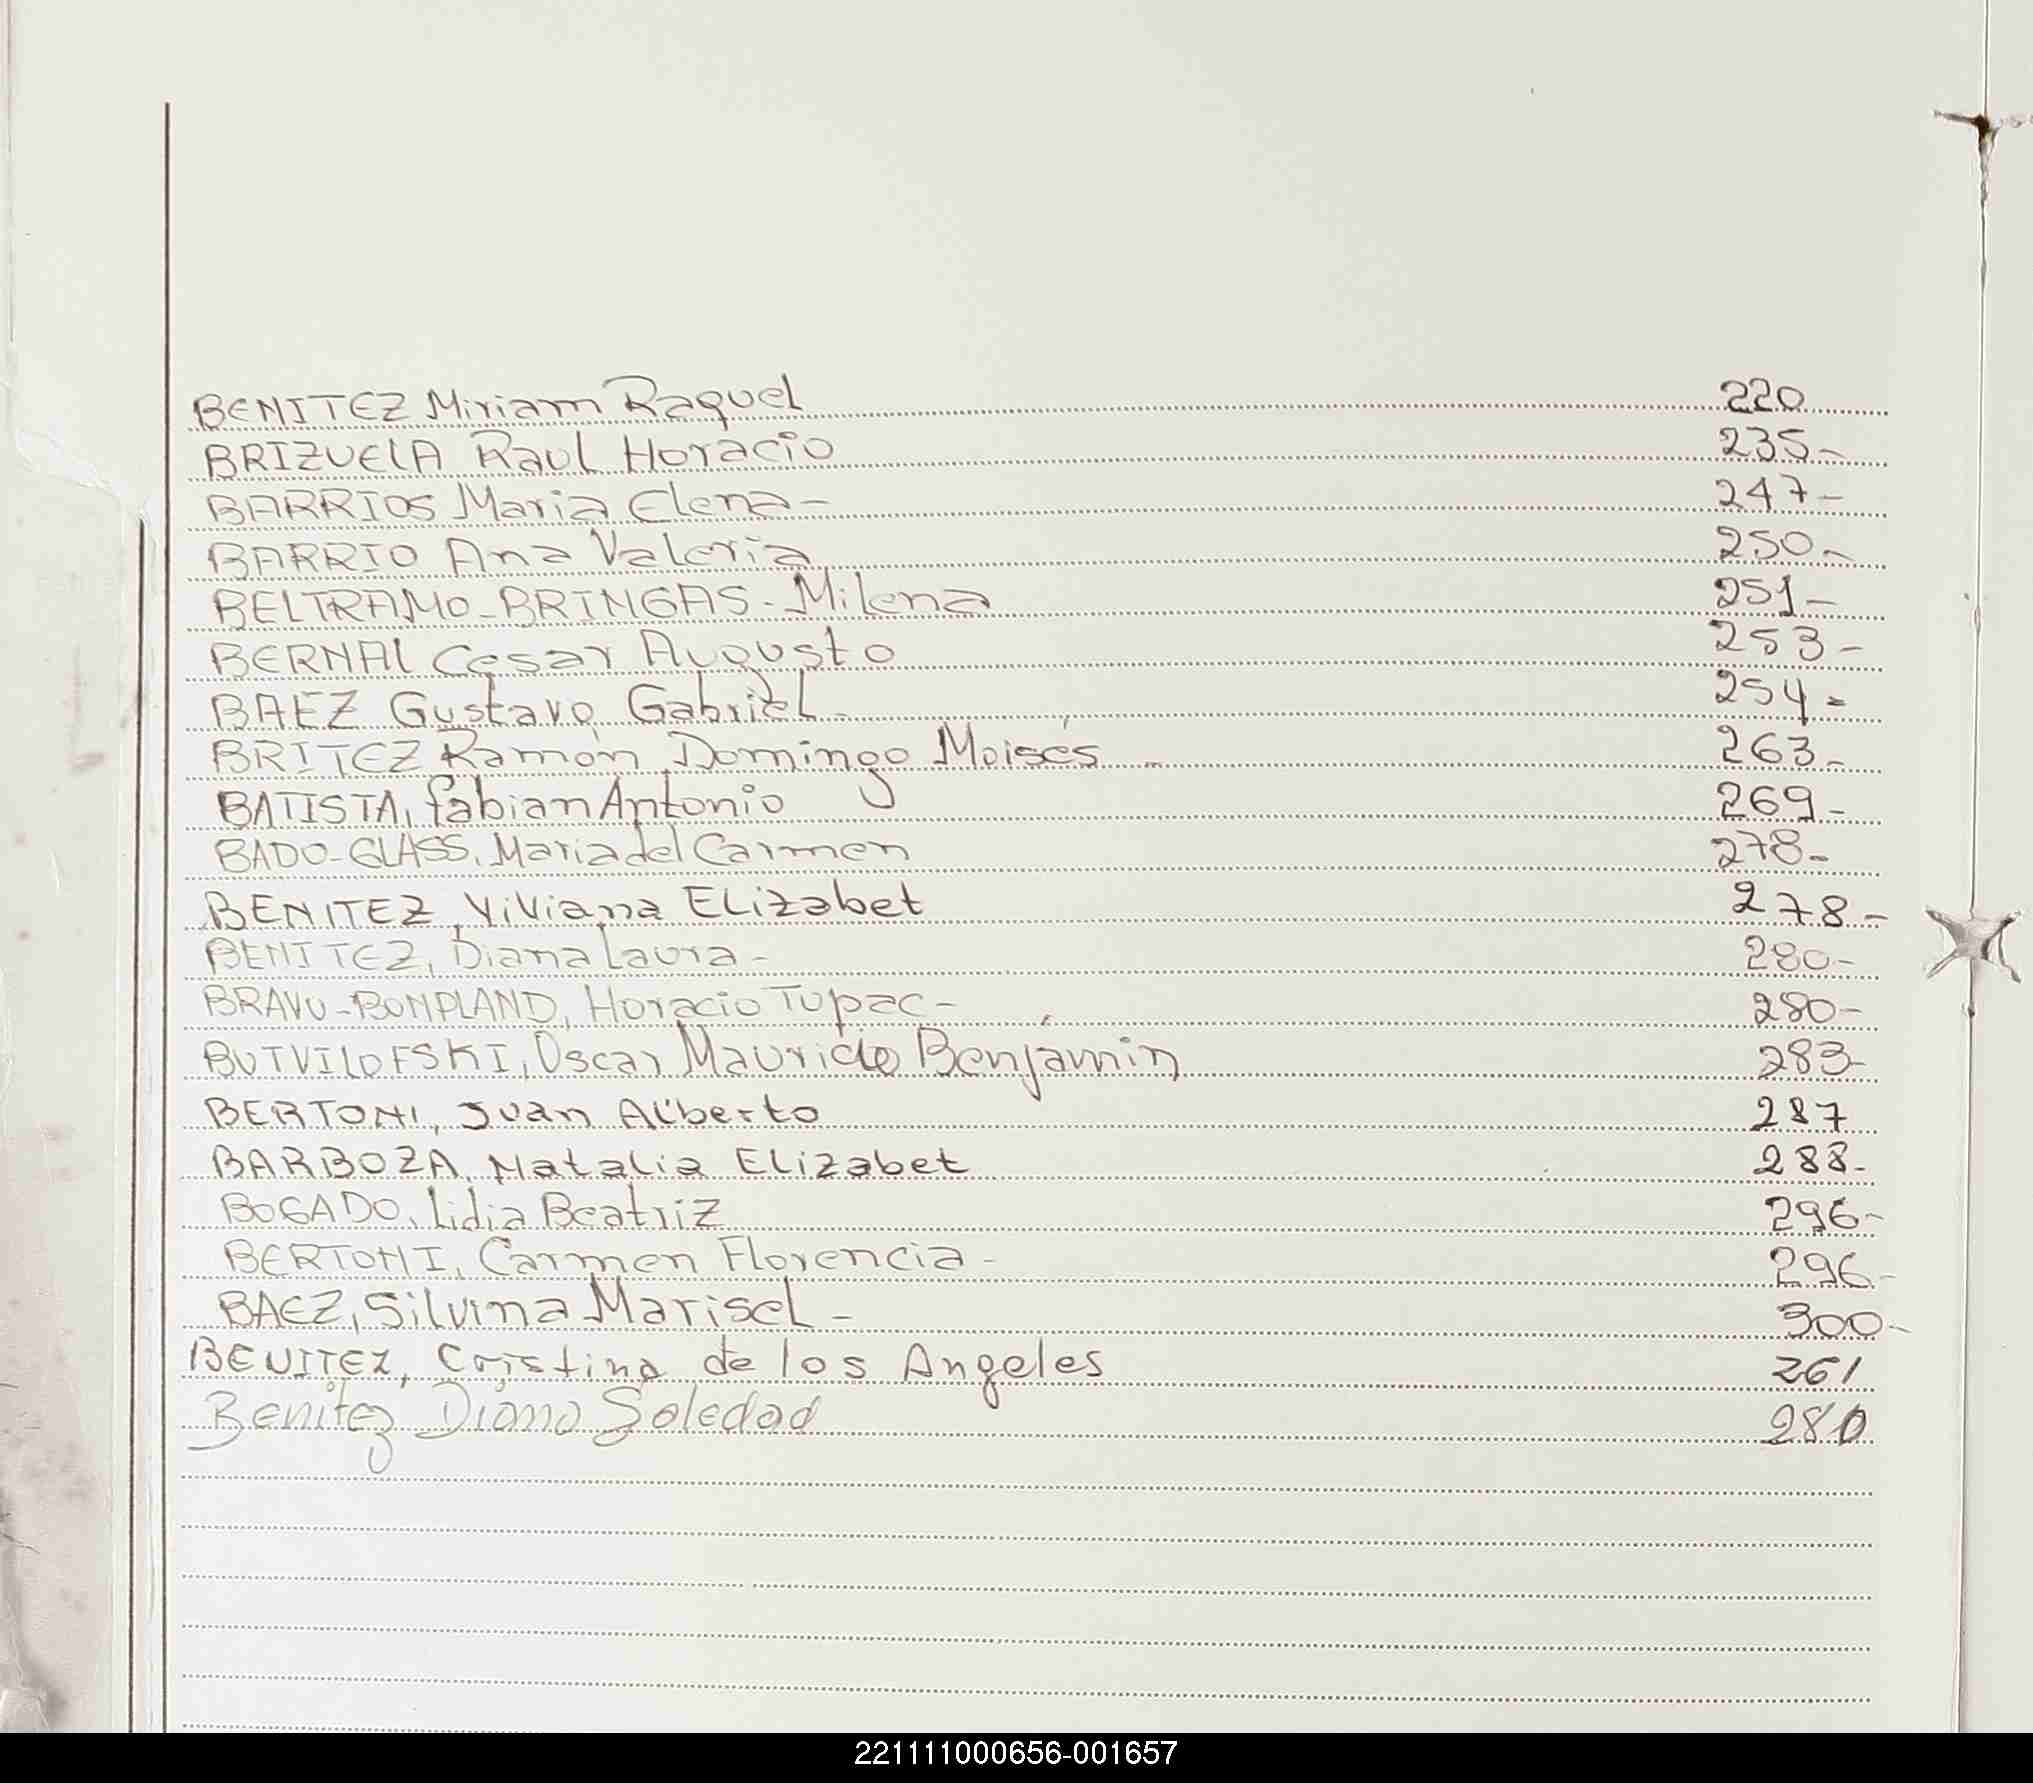 BENITEZ Miriam Raquel 220
BRIZUELA Raul Horacio 235-
BARRIOS Maria Elena- 247-
BARRIO Ana Valeria 250-
BELTRAMO-BRINGAS-Milena 251-
BERNAL Cesar Augusto 253-
BAEZ Gustavo Gabriel- 254-
BRITEZ Ramón Domingo Moisés - 263-
BATISTA, fabian Antonio 269-
BADO-GLASS, Maria del Carmen 278-
BENITEZ, Viviana Elizabet 278-
BENITEZ, Diana Laura- 280-
BRAVO-BONPLAND, Horacio Tupac- 280-
BUTVILOFSKI, Oscar Mauricio Benjamín 283-
BERTONI, Juan Alberto 287
BARBOZA, Natalia Elizabet 288-
BOGADO, Lidia Beatriz 296-
BERTONI, Carmen Florencia- 296-
BAEZ, Silvina Marisel- 300-
BENITEZ, Cristina de los Angeles 261
Benitez Diana Soledad 280
221111000656-001657